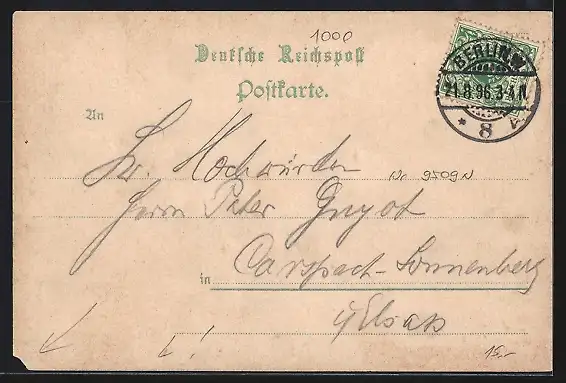 1000
Deutsche Reichspost
Postkarte.
BERLIN, W.
21.8.96.3-4 N
* 8
An
Sr. Hochwürden
Nr 9709N
Herrn Pater Guyot
in Carspach-Sonnenberg
i/Elsaß
15.-